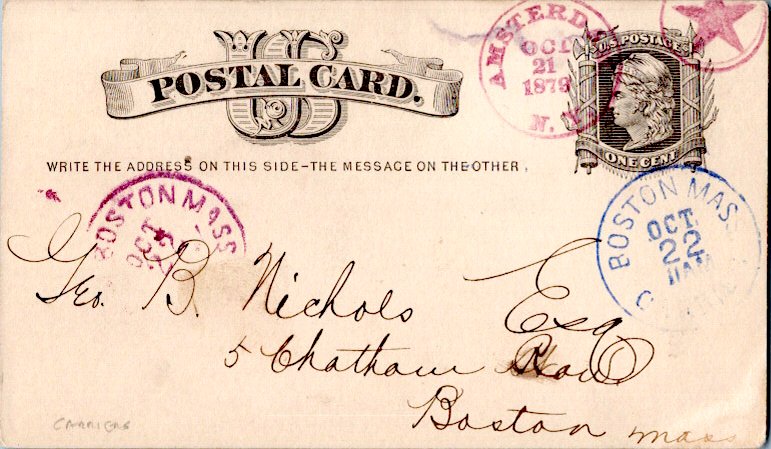 US
POSTAL CARD.
WRITE THE ADDRESS ON THIS SIDE-THE MESSAGE ON THE OTHER.
AMSTERD
OCT
21
1879
N.Y.
U.S. POSTAGE
ONE CENT
BOSTON MASS
OCT
22
BOSTON MASS
OCT.
22
11AM
Geo. B. Nichols Esq
5 Chatham Row
Boston Mass
CARRIERS